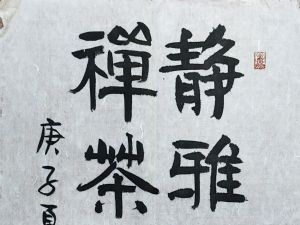 静雅
禪茶
庚子夏